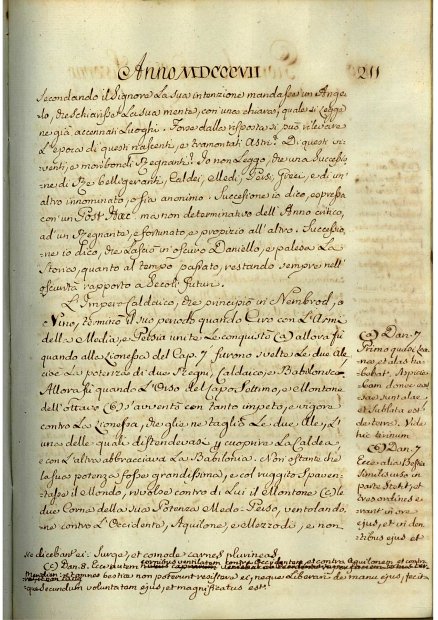 Anno MDCCCVII
211
secondando il Signore la sua intenzione mandasse un Ange-
lo, che schiarisse la sua mente, con una chiara, quale si legge
ne già accennati Luoghi. Forse dalla risposta si può rilevare
l'epoca di questi nascenti, e tramontati Astri? Di questi vi-
venti, e moribondi Regnanti? Io non leggo, che una Successio-
ne di Re belligeranti, Caldei, Medi, Persi, Greci, e di un'
altro innominato, o sia anonimo. Successione io dico, espressa
con un Post Haec ma non determinativo dell'Anno critico,
ad un Regnante, e fortunato, e propizio all'altro. Successio-
ne io dico, che lasciò in oscuro Daniello, e palesa lo
Storico, quanto al tempo passato, restando sempre nell'
oscurità rapporto a Secoli futuri.
L'Impero Caldaico, che principiò in Nembrod, o
Nino, terminò il suo periodo quando Ciro con l'Armi
della Media, e Persia unite lo conquistò (a) allora fu
quando alla Lionessa del Cap. 7 furono svelte le due ale
cioè la potenza di due Regni, Caldaico, e Babilonico.
Allora fu quando l'Orso del Capo Settimo, e Montone
dell'ottavo (b) s'avventò con tanto impeto, e vigore
contro la Lionessa, che gliene tagliò le due Ale, l'
una delle quali distendevasi, e cuopriva la Caldea,
e con l'altra abbracciava la Babilonia. Non ostante che
la sua potenza fosse grandissima, e col ruggito spaven-
tasse il Mondo, rivolse contro di lui il Montone (c) le
due Corna della sua Potenza Medo-Perso, ventolando-
ne contro l'Occidente, Aquilone, e Mezzodì, e non
(a) Dan. 7
Primo quasi Lea-
nea, et alas ha-
bebat. Aspicie-
bam donec evul-
sae sunt alae,
et sublata est
de terra. Vide
hic terinum
(b) Dan. 7
Ecce alia Bestia
similis urso in
parte stetit, et
tres ordines e-
rant in ore
ejus, et in den-
tibus ejus et
sic dicebant ei: Surge, et comede carnes plurimas.
cornibus ventilatem contra Occidentem, et contra Aquilonem et contra
(c) Dan. 8. Ecce autem
Meridiem: et omnes bestiae non poterunt resistere ei, neque liberari de manu ejus, fecit-
que secundum voluntatem ejus, et magnificatus est.